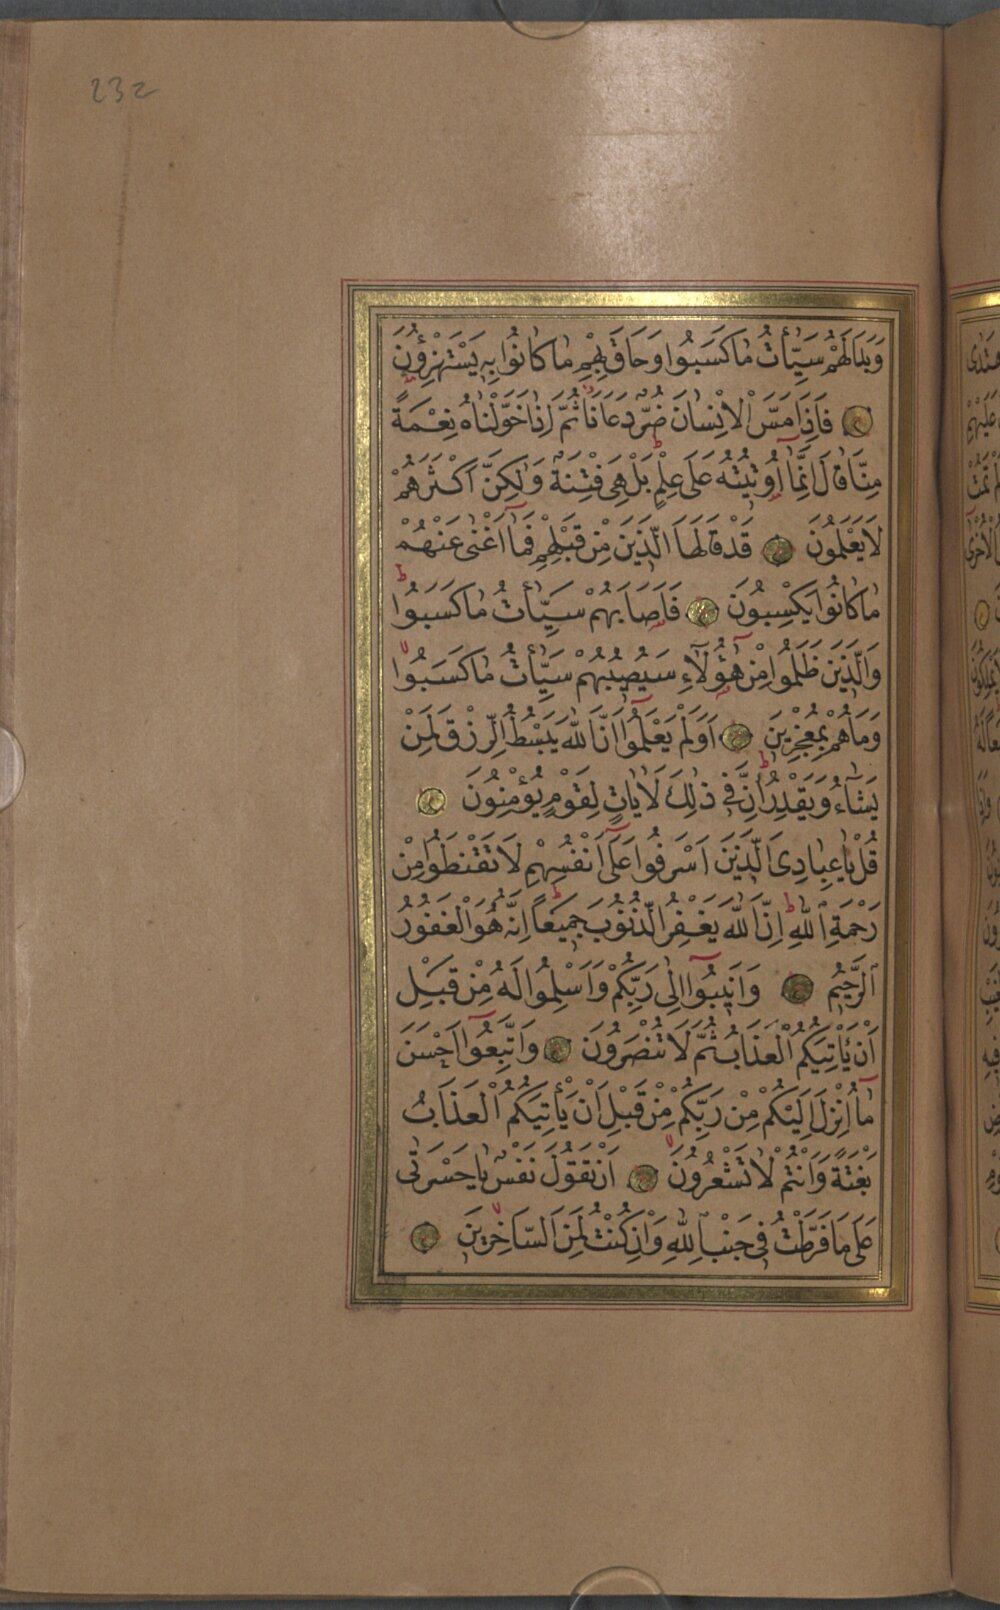 232
وَبَدَا لَهُمْ سَيِّاٰتُ مَا كَسَبُوا وَحَاقَ بِهِمْ مَا كَانُوا بِهِ يَسْتَهْزِؤُنَ
فَاِذَا مَسَّ الْاِنْسَانَ ضُرٌّ دَعَانَا ثُمَّ اِذَا خَوَّلْنَاهُ نِعْمَةً
مِنَّا قَالَ اِنَّمَا اُوتِيتُهُ عَلٰى عِلْمٍ بَلْ هِيَ فِتْنَةٌ وَلٰكِنَّ اَكْثَرَهُمْ
لَا يَعْلَمُونَ قَدْ قَالَهَا الَّذِينَ مِنْ قَبْلِهِمْ فَمَا اَغْنٰى عَنْهُمْ
مَا كَانُوا يَكْسِبُونَ فَاَصَابَهُمْ سَيِّاٰتُ مَا كَسَبُوا
وَالَّذِينَ ظَلَمُوا مِنْ هٰؤُلَاءِ سَيُصِيبُهُمْ سَيِّاٰتُ مَا كَسَبُوا
وَمَا هُمْ بِمُعْجِزِينَ اَوَلَمْ يَعْلَمُوا اَنَّ اللّٰهَ يَبْسُطُ الرِّزْقَ لِمَنْ
يَشَاءُ وَيَقْدِرُ اِنَّ فِي ذٰلِكَ لَاٰيَاتٍ لِقَوْمٍ يُؤْمِنُونَ
قُلْ يَا عِبَادِيَ الَّذِينَ اَسْرَفُوا عَلٰى اَنْفُسِهِمْ لَا تَقْنَطُوا مِنْ
رَحْمَةِ اللّٰهِ اِنَّ اللّٰهَ يَغْفِرُ الذُّنُوبَ جَمِيعًا اِنَّهُ هُوَ الْغَفُورُ
الرَّحِيمُ وَاَنِيبُوا اِلٰى رَبِّكُمْ وَاَسْلِمُوا لَهُ مِنْ قَبْلِ
اَنْ يَاْتِيَكُمُ الْعَذَابُ ثُمَّ لَا تُنْصَرُونَ وَاتَّبِعُوا اَحْسَنَ
مَا اُنْزِلَ اِلَيْكُمْ مِنْ رَبِّكُمْ مِنْ قَبْلِ اَنْ يَاْتِيَكُمُ الْعَذَابُ
بَغْتَةً وَاَنْتُمْ لَا تَشْعُرُونَ اَنْ تَقُولَ نَفْسٌ يَا حَسْرَتٰى
عَلٰى مَا فَرَّطْتُ فِي جَنْبِ اللّٰهِ وَاِنْ كُنْتُ لَمِنَ السَّاخِرِينَ